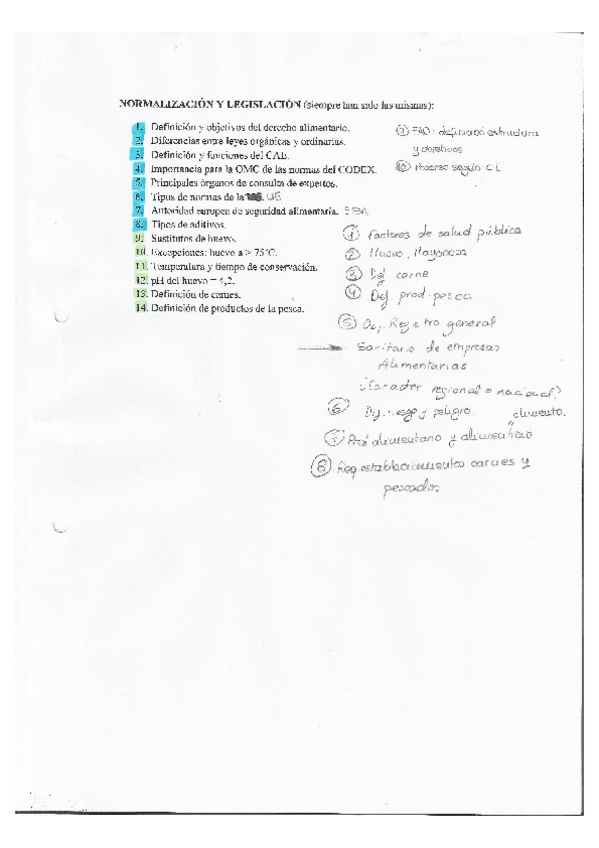 NORMALIZACIÓN Y LEGISLACIÓN (siempre han sido las mismas):
1. Definición y objetivos del derecho alimentario.
2. Diferencias entre leyes orgánicas y ordinarias.
3. Definición y funciones del CAE.
4. Importancia para la OMC de las normas del CODEX.
5. Principales órganos de consulta de expertos.
6. Tipos de normas de la UE
7. Autoridad europea de seguridad alimentaria.
8. Tipos de aditivos.
9. Sustitutos de huevo.
10. Excepciones: huevo a > 75ºC.
11. Temperatura y tiempo de conservación.
12. pH del huevo = 4,2.
13. Definición de carnes.
14. Definición de productos de la pesca.
9 FAO: definición estructura
y objetivos
10 según
1 Factores de salud pública
2 Huevo, Mayonesa
3 Def carne
4 Def. prod. pesca
5 Registro general
Sanitario de empresas
Alimentarias
¿Caracter regional o nacional?
6 riesgo y peligro.
7 alimentario y alimenticio
8 Reg. establecimientos carnes y
pescados